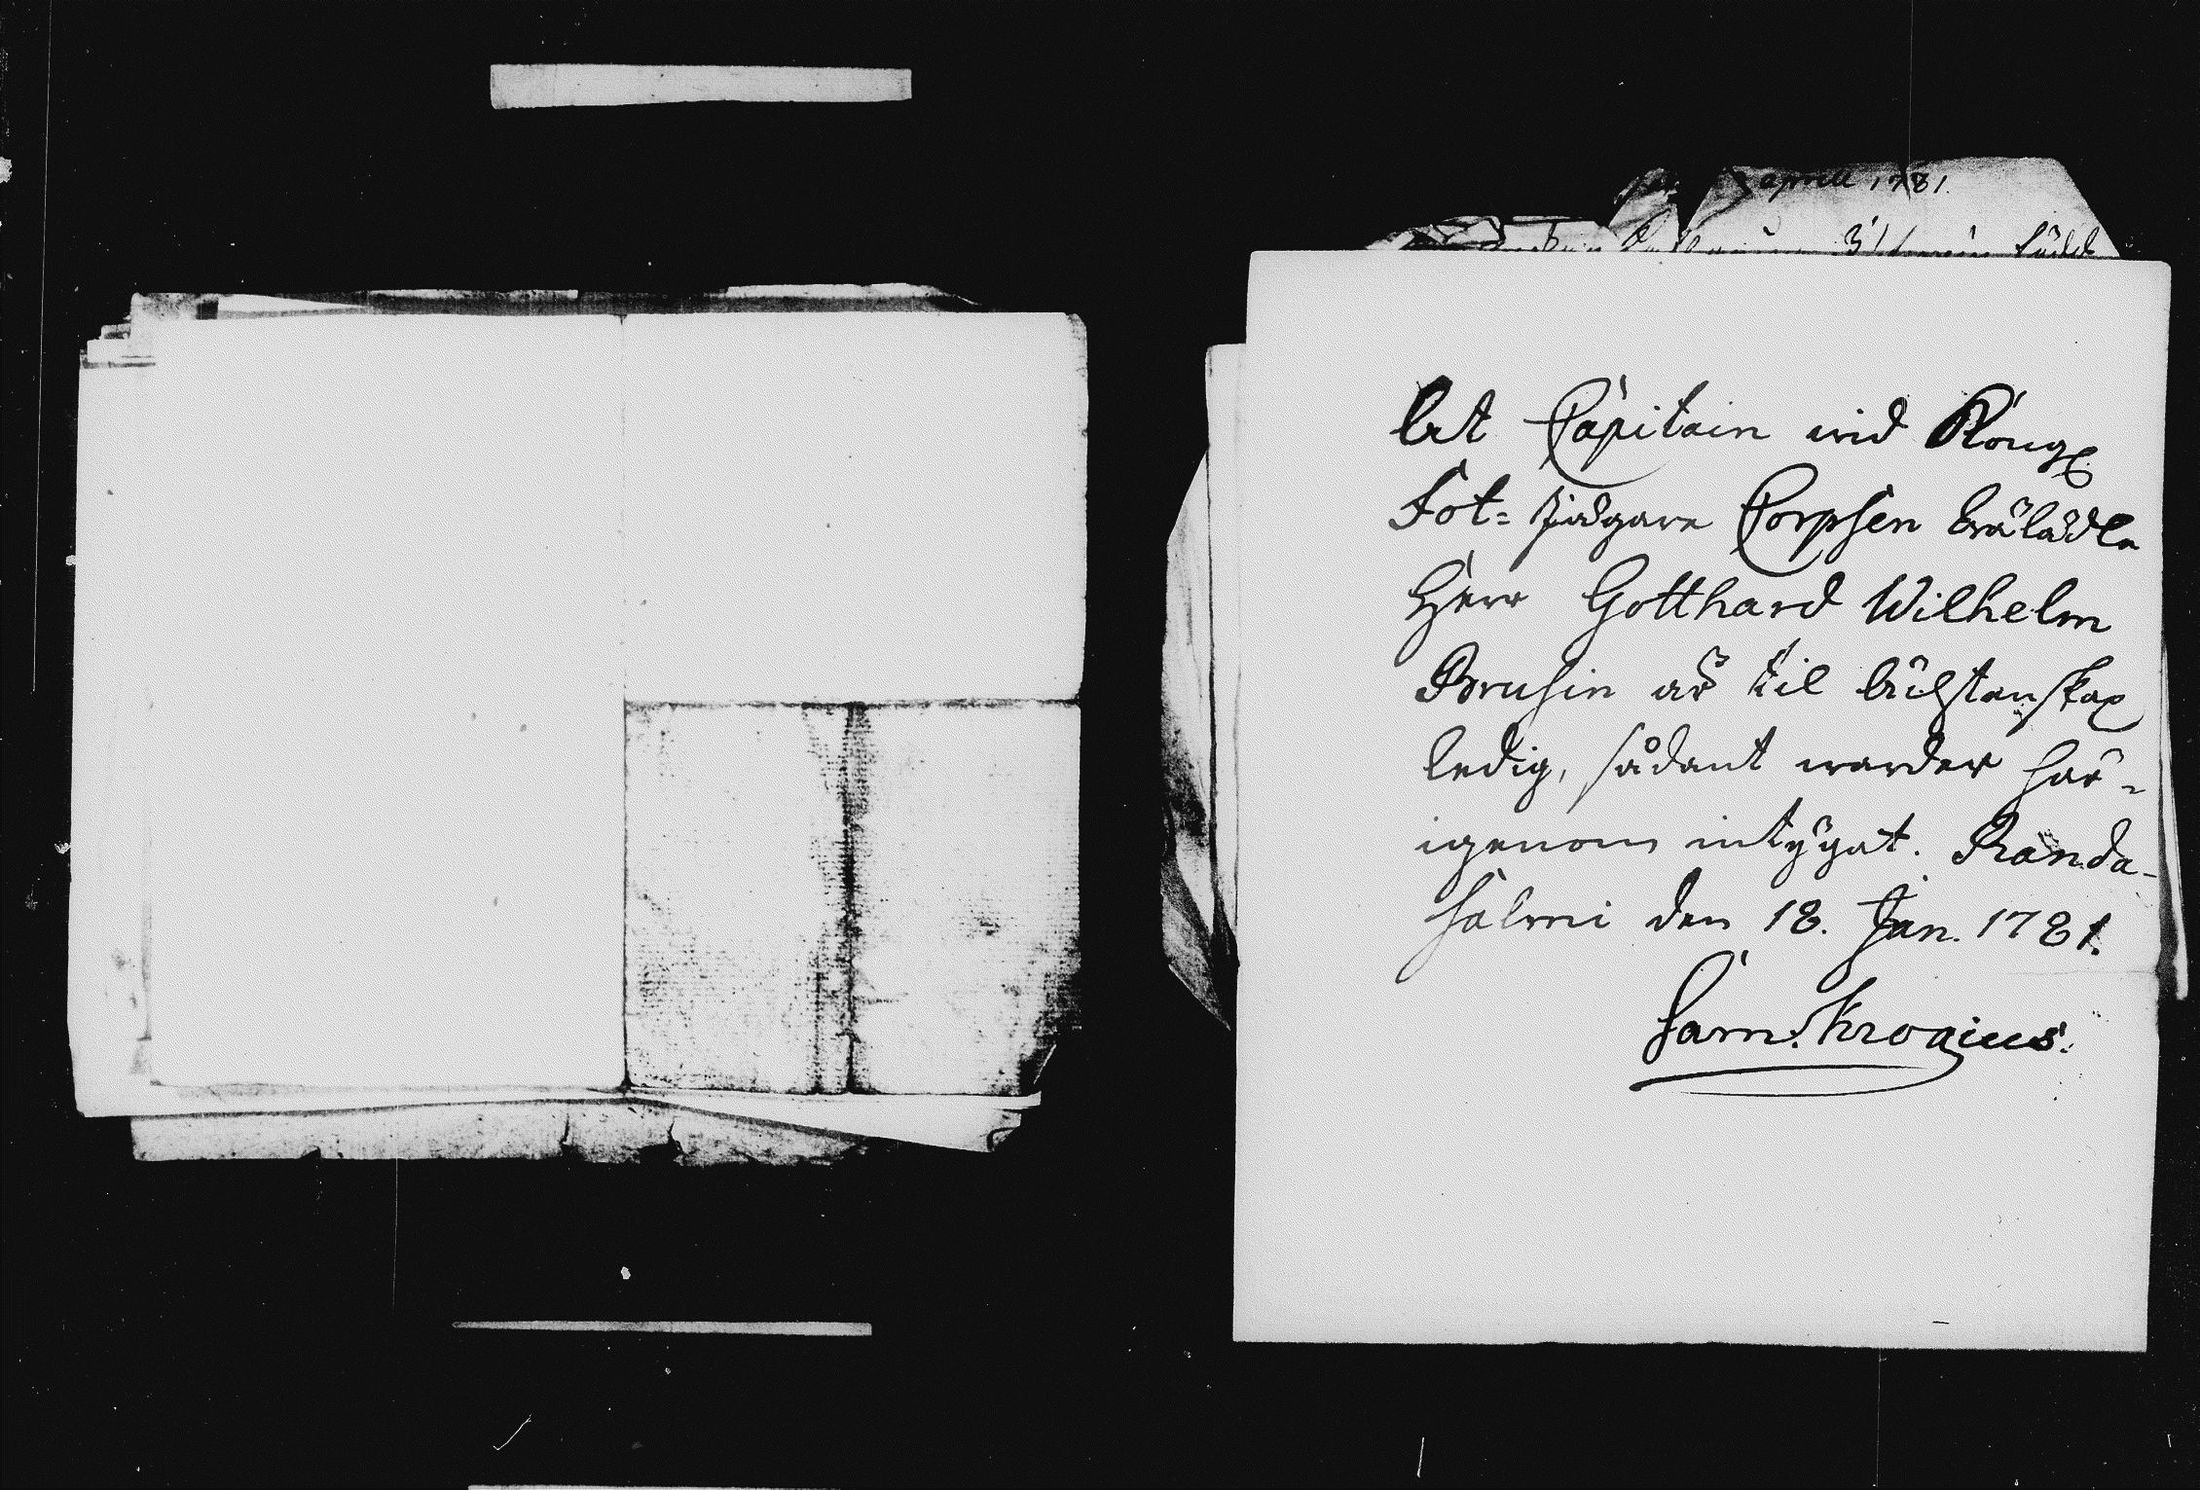 aprill 1781.
At Capitain wid Kongl
Fot-Jägare Corpsen Wälädle
Herr Gotthard Wilhelm
Brusin är til ächtenskap
ledig, sådant warder här-
igenom intygat. Randa-
salmi den 18. Jan. 1781.
Sam. Krogius.